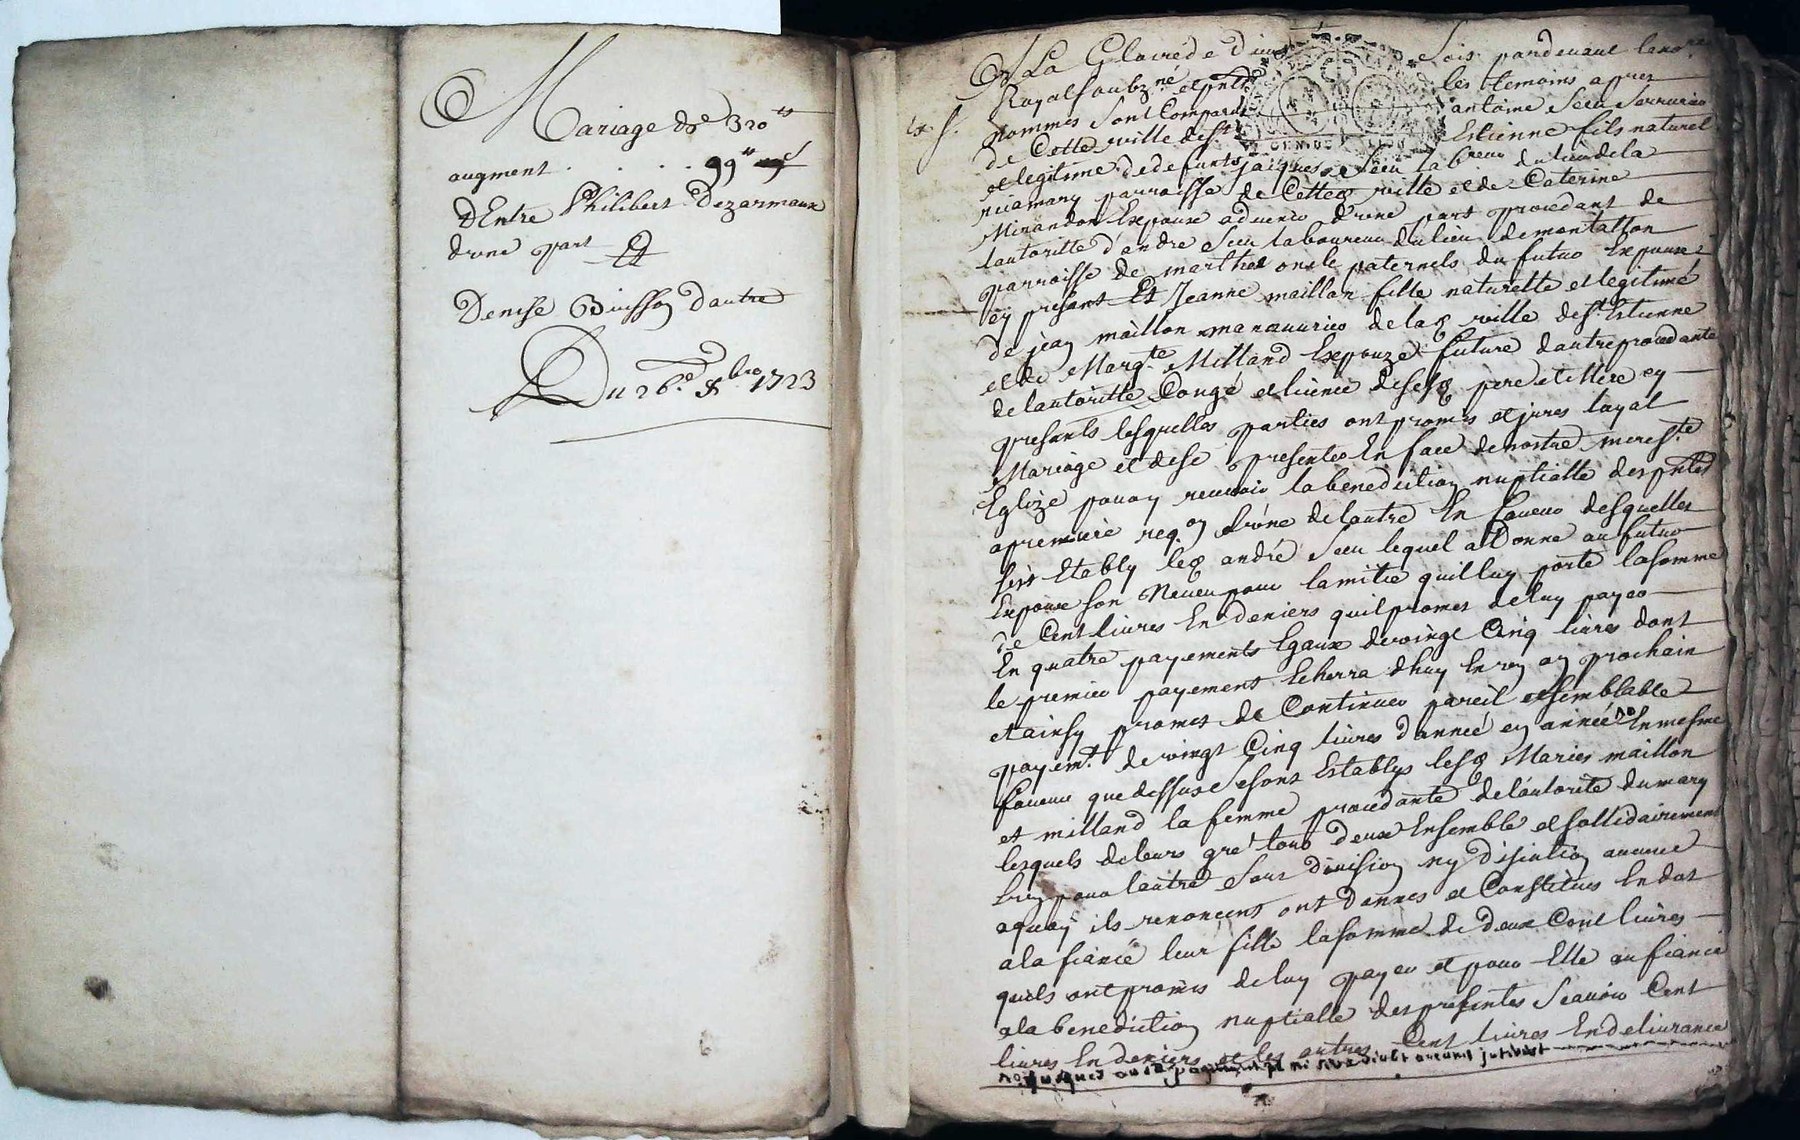 Mariage de 320ᵗᵗ
augment . . . 99ᵗᵗ
D'Entre Philibert Dezarmaux
d'une part Et
Denise Buisson d'autre
Du 26ᵉ 8bre 1723
A La Gloire de dieu Sois pardevant le noʳᵉ
Royal soubzⁿᵉ et pntˢ les temoins apres
nommes sont Comparus antoine Seeu Serrurier
de Cette ville de Sᵗ Estienne fils naturel
et legitime de defunts jacques Seeu laboureur du lieu de la
paroisse de Cette ville et de Caterine
Mirandon Expoux advenir d'une part procedant de
lautoritte d'andre Seeu laboureur du lieu de montallon
parroisse de marthes oncle paternels du futur Expoux
ey present Et Jeanne maillon fille naturelle et legitime
de jean maillon manouvrier de lad ville de Sᵗ Estienne
et de Margᵗᵉ Milland Expouze future d'autre procedante
de lautoritte Congé et licence de sesd pere et Mere ey
presents lesquelles parties ont promis et jures loyal
Mariage et de se presenter En face de nostre mere Sᵗᵉ
Eglize pour recevoir la benediction nuptialle des pntes
a premiere reqᵒⁿ d'une de lautre En faveur desquelles
sest Etably led andré Seeu lequel a Donne au futur
Expoux son Neveu pour lamitie quil luy porte la somme
de Cent livres En deniers quil promet de luy payer
En quatre payements Egaux de vingt Cinq livres dont
le premier payement Echerra d'huy En un an prochain
et ainsy promet de Continuer pareil et semblable
payemᵗ de vingt Cinq livres d'année en année En mesme
faveur que dessus se sont Establys lesd Maries maillon
et milland la femme procedante de l'autorité du mary
lesquels de leurs gré tous deux Ensemble et sollidairement
L'un pour lautre sans division ny discution aucune
a quoy ils renoncent ont donnes et Constitues En dot
a la fiancé leur fille la somme de deux Cent livres
quils ont promis de luy payer et pour Elle au fiancé
a la benediction nuptialle des presentes Scavoir Cent
livres En deniers et les autres Cent livres En delivrance